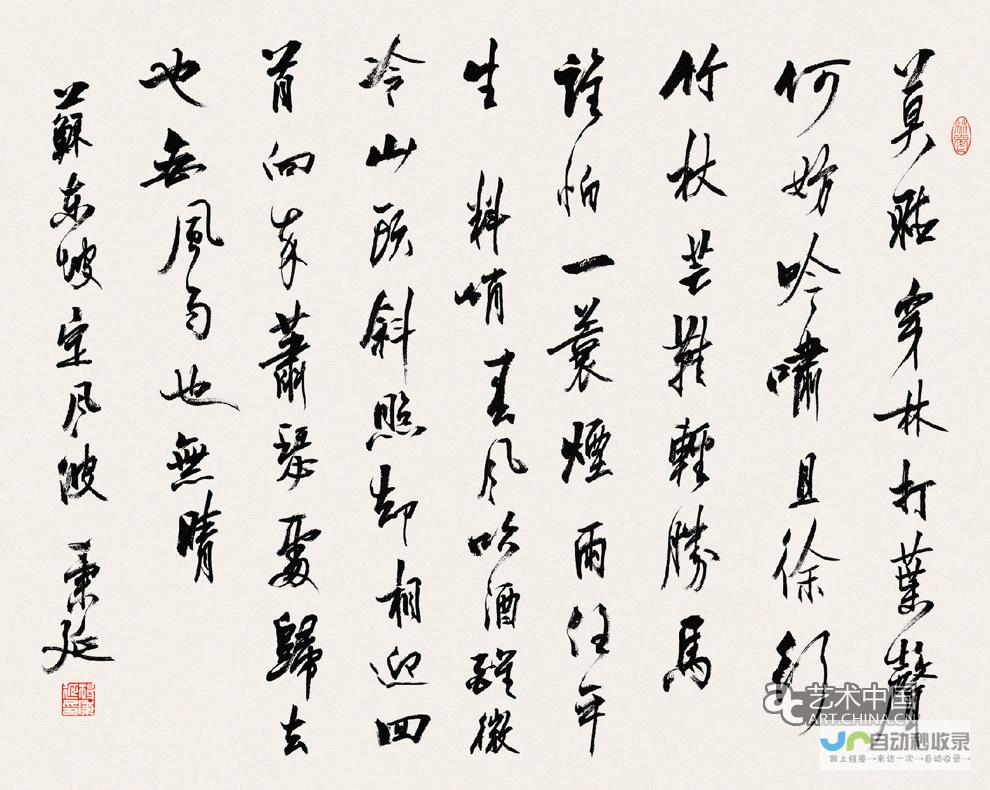 莫聽穿林打葉聲
何妨吟嘯且徐行
竹杖芒鞋輕勝馬
誰怕一蓑煙雨任平
生 料峭春风吹酒醒微
冷山頭斜照却相迎回
首向來蕭瑟處歸去
也無風雨也無晴
蘇东坡定风波 秉延
艺术中国
ART.CHINA.CN
自动秒收录
做上链接→来访一次→自动收录→